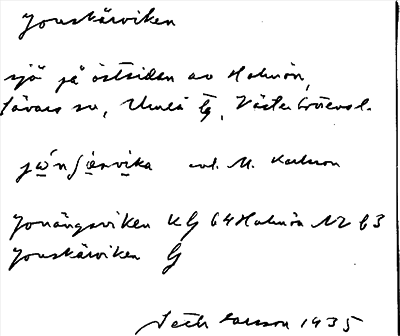 Jonskärviken
sjö på östsidan av Holmön,
Sävars sn, Umeå tg, Västerbottens l.
jωnʃærvika uml. M. Karlsson
Jonängsviken KG 64 Holmön Nr 63
Jonskärviken G
Seth Larsson 1935